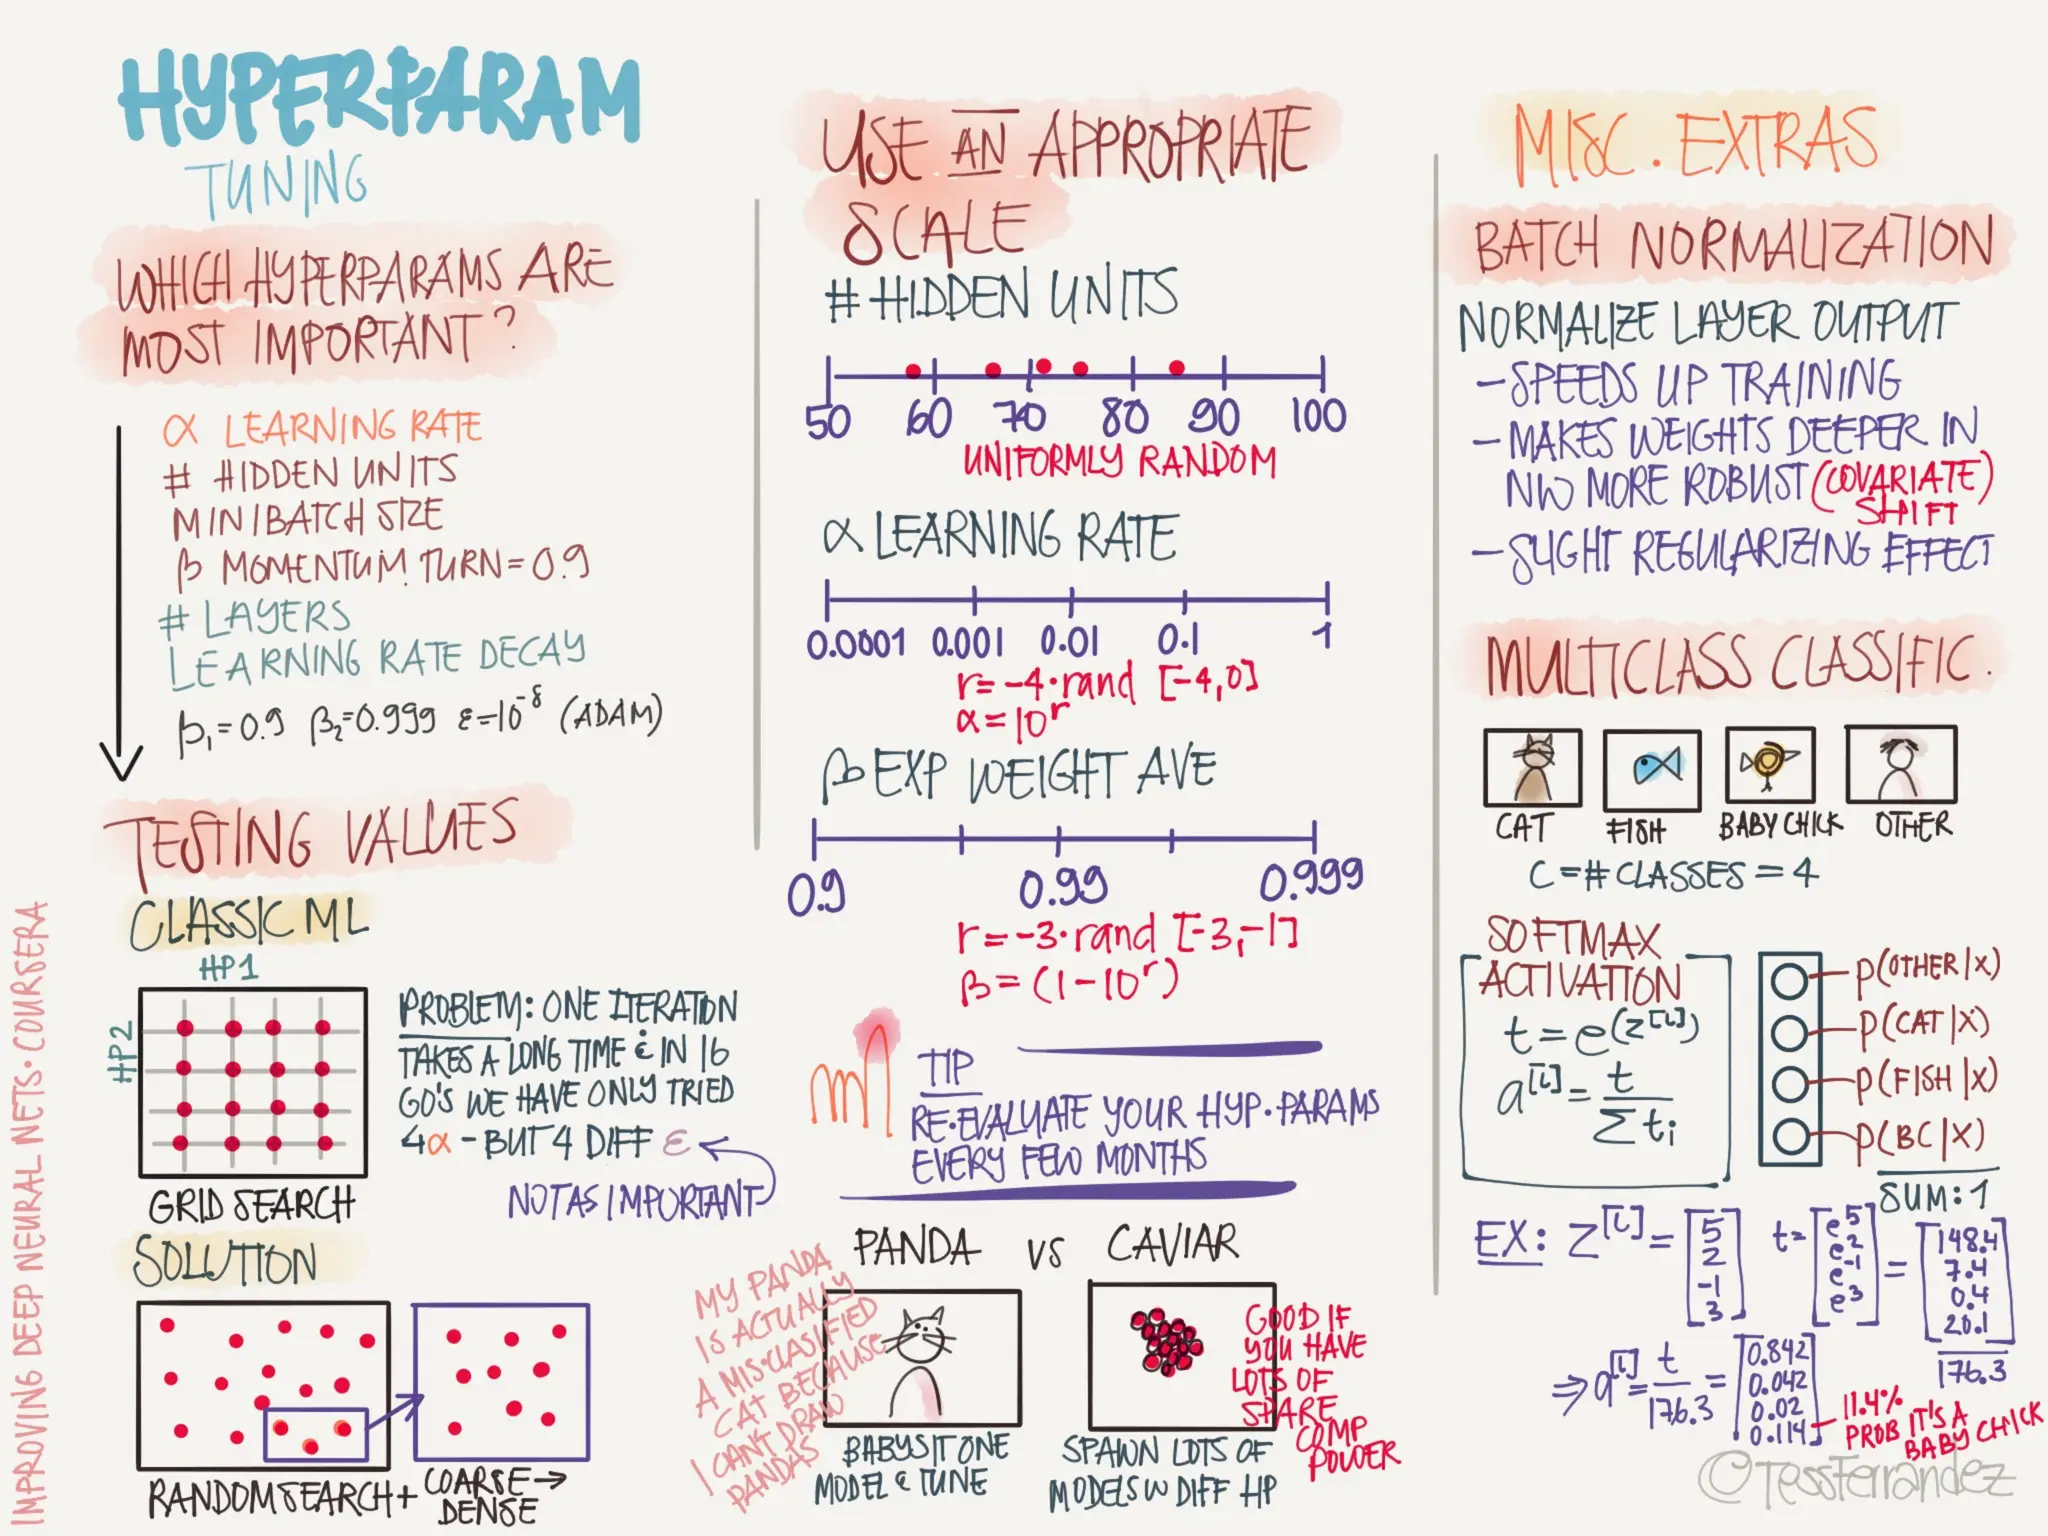 HYPERPARAM
TUNING
WHICH HYPERPARAMS ARE
MOST IMPORTANT?
α LEARNING RATE
# HIDDEN UNITS
MINIBATCH SIZE
β MOMENTUM TURN = 0.9
# LAYERS
LEARNING RATE DECAY
β₁=0.9 β₂=0.999 ε=10⁻⁸ (ADAM)
TESTING VALUES
CLASSIC ML
HP1
HP2
GRID SEARCH
PROBLEM: ONE ITERATION
TAKES A LONG TIME & IN 16
GO'S WE HAVE ONLY TRIED
4α - BUT 4 DIFF ε
NOT AS IMPORTANT
SOLUTION
RANDOM SEARCH + COARSE →
DENSE
IMPROVING DEEP NEURAL NETS · COURSERA
USE AN APPROPRIATE
SCALE
# HIDDEN UNITS
50 60 70 80 90 100
UNIFORMLY RANDOM
α LEARNING RATE
0.0001 0.001 0.01 0.1 1
r = -4·rand [-4,0]
α = 10^r
β EXP WEIGHT AVE
0.9 0.99 0.999
r = -3·rand [-3,-1]
β = (1-10^r)
TIP
RE-EVALUATE YOUR HYP.PARAMS
EVERY FEW MONTHS
PANDA VS CAVIAR
MY PANDA
IS ACTUALLY
A MIS·CLASIFIED
CAT BECAUSE
I CAN'T DRAW
PANDAS
BABYSIT ONE
MODEL & TUNE
GOOD IF
YOU HAVE
LOTS OF
SPARE
COMP
POWER
SPAWN LOTS OF
MODELS W DIFF HP
MISC. EXTRAS
BATCH NORMALIZATION
NORMALIZE LAYER OUTPUT
- SPEEDS UP TRAINING
- MAKES WEIGHTS DEEPER IN
NW MORE ROBUST (COVARIATE)
SHIFT
- SLIGHT REGULARIZING EFFECT
MULTICLASS CLASSIFIC.
CAT FISH BABY CHICK OTHER
C = # CLASSES = 4
SOFTMAX
ACTIVATION
t = e^(z^[L])
a^[L] = t / Σ ti
P(OTHER|X)
P(CAT|X)
P(FISH|X)
P(BC|X)
SUM: 1
EX: z^[L] = [5 2 -1 3] t = [e^5 e^2 e^-1 e^3] = [148.4 7.4 0.4 20.1]
176.3
⇒ a^[L] = t / 176.3 = [0.842 0.042 0.02 0.114]
11.4%
PROB IT'S A
BABY CHICK
@TessFerrandez